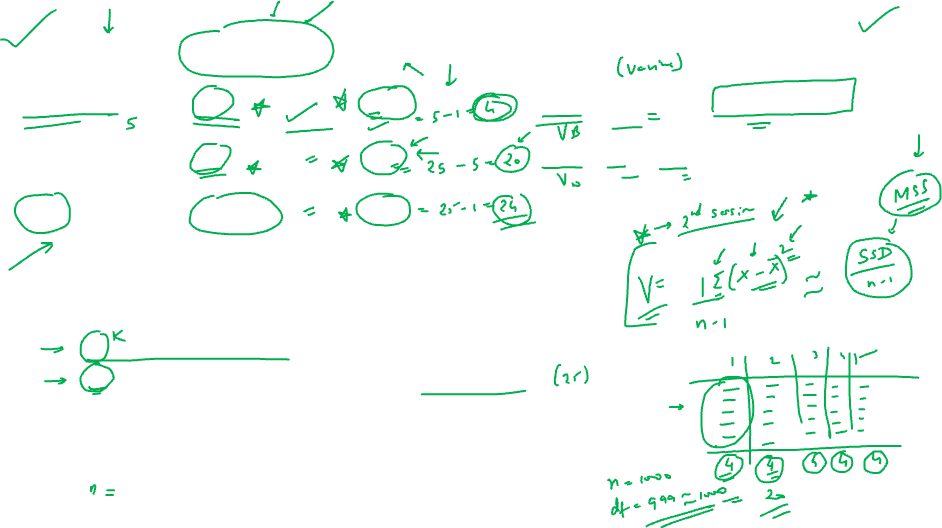 (Varia)
5
= 5 - 1 = 4
VB
=
= 25 - 5 = 20
VW
=
= 25 - 1 = 24
MSS
→ 2nd session
V = 1 Σ(x - x̄)²
n - 1
≈
SSD
n - 1
K
(25)
1 2 3 4 5
4 4 4 4 4
n = 1000
df = 999 ≈ 1000 = 20
n =